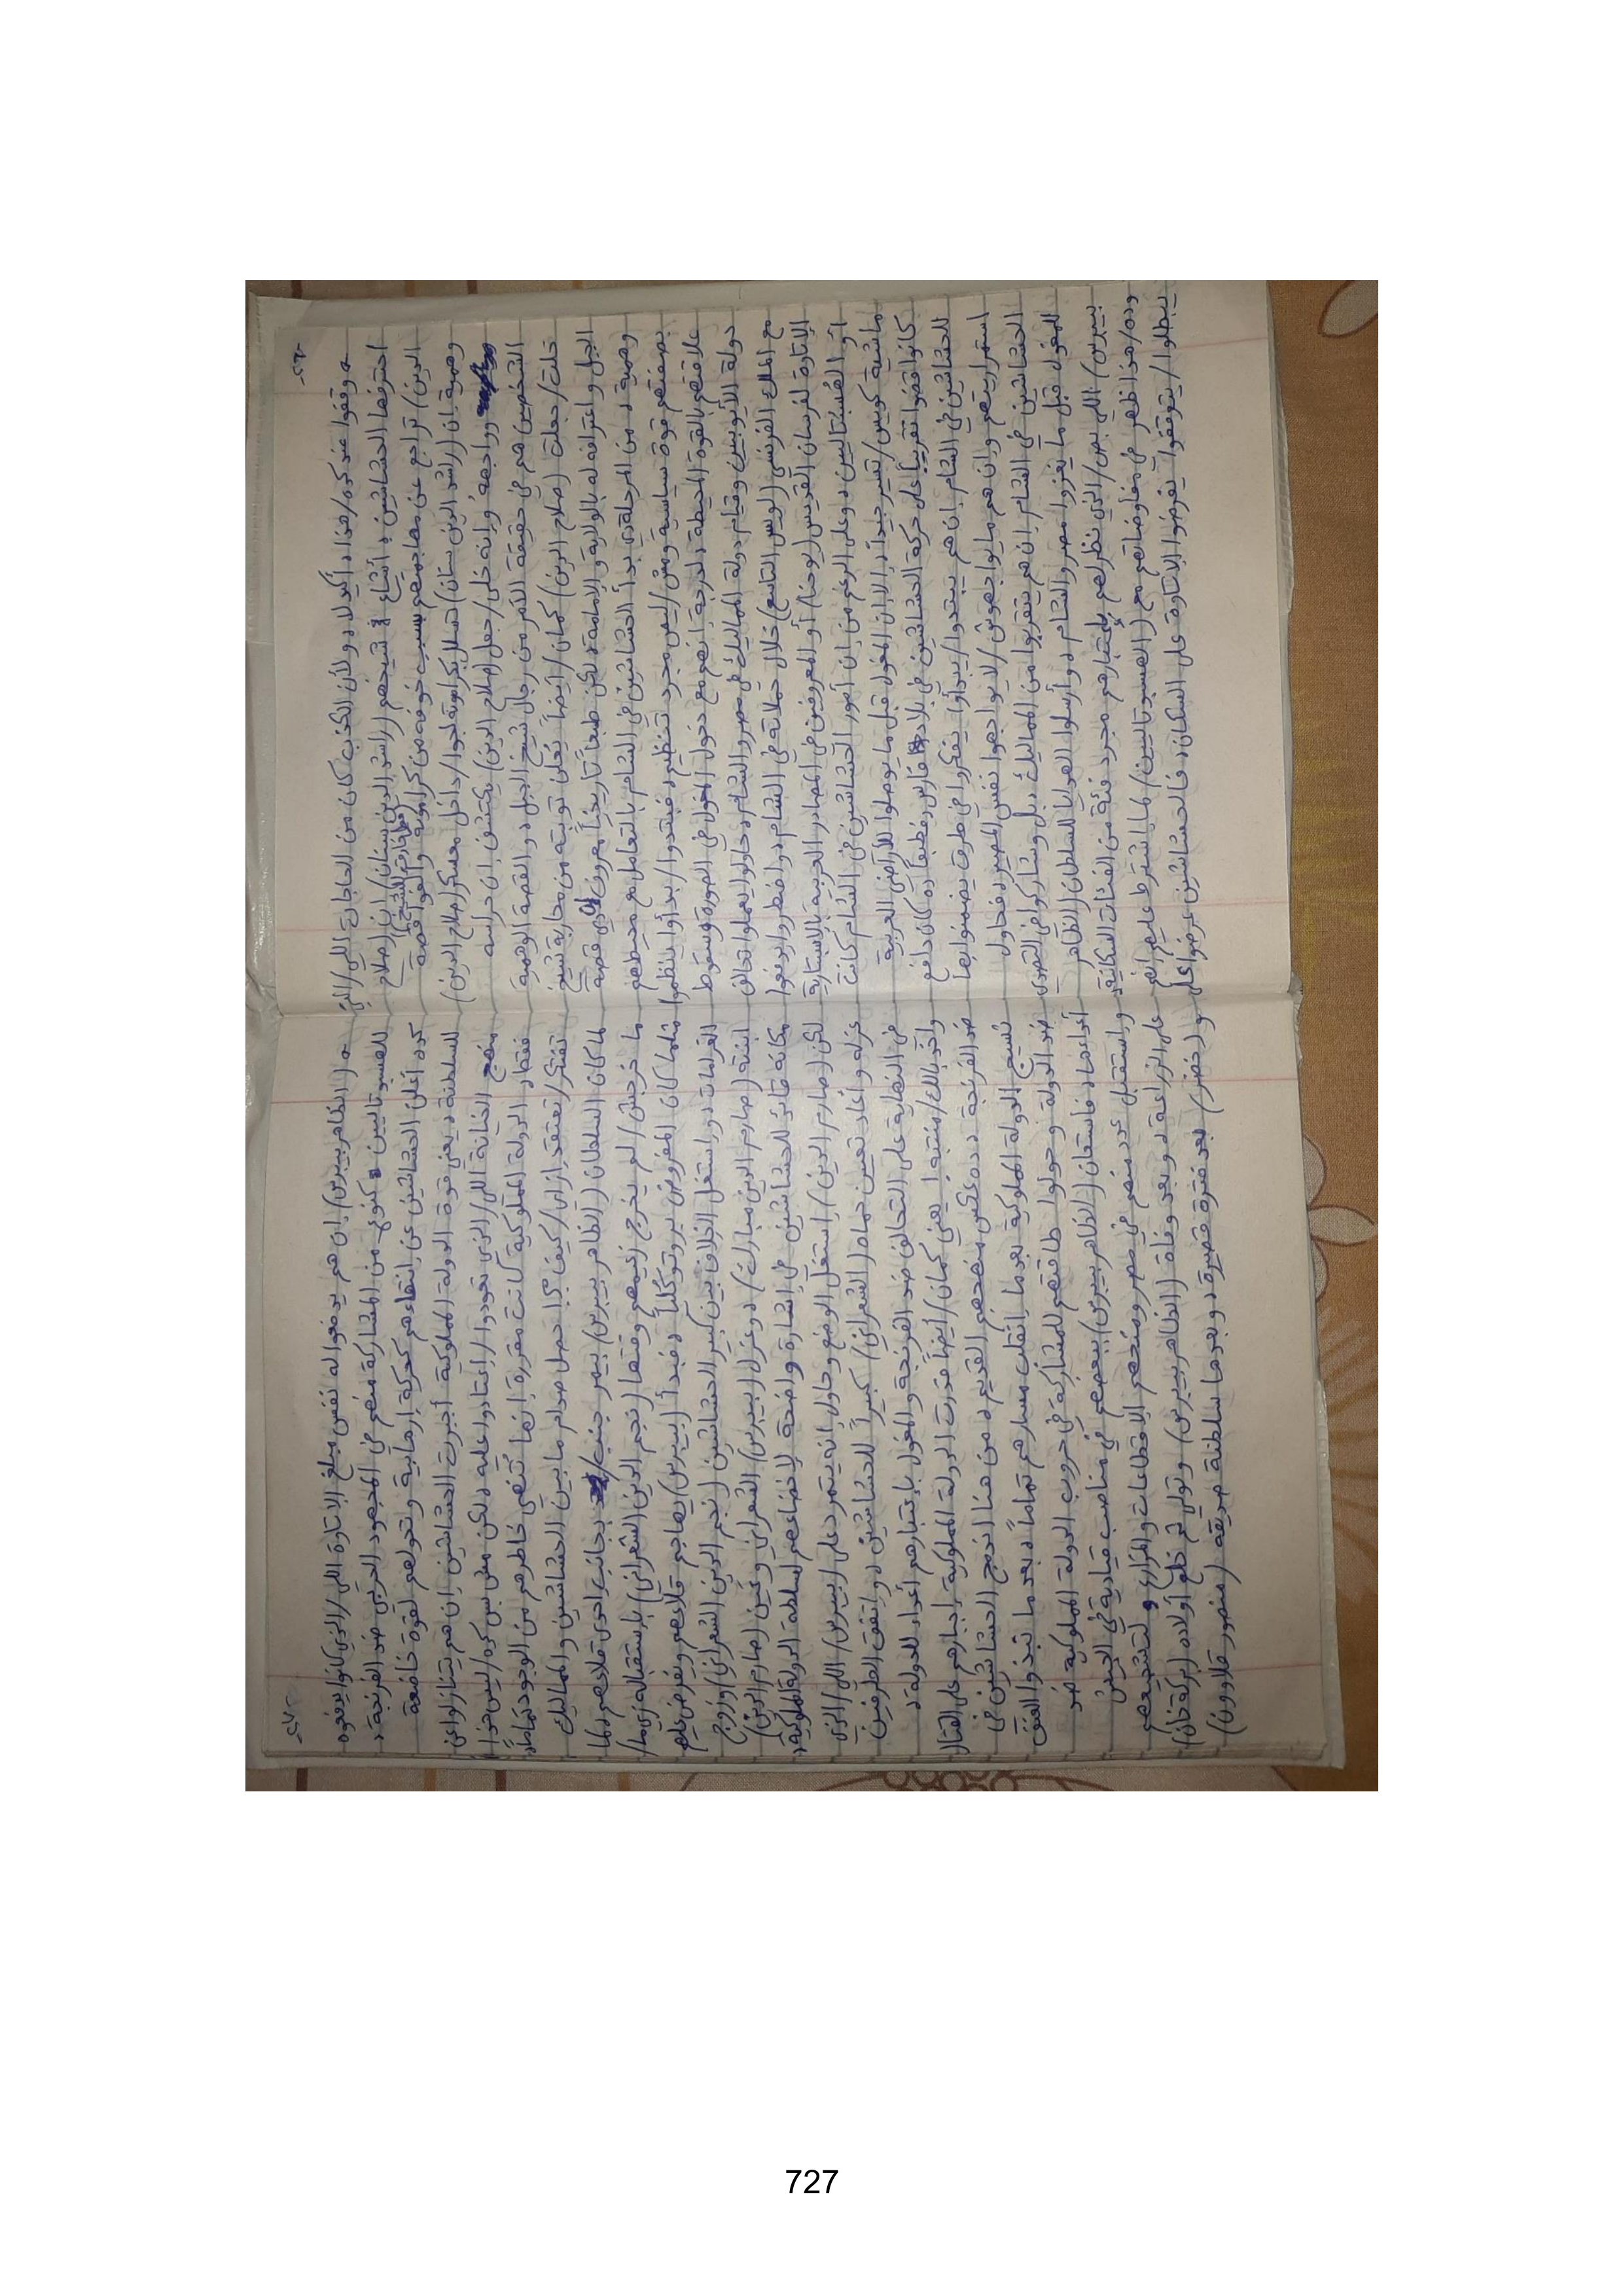 -٢٦-
ـه وقفوا عند كده/هذا، أكيد لا، ولأن الكذب كان من الحاجات اللي/التي
احترفها الحشاشين، أشاع شيخهم (راشد الدين سنان) إن (صلاح
الدين) تراجع عن مهاجمتهم بسبب خوفه من كراماته وألفوا قصة
وهمية إن (راشد الدين سنان) تسلل بكراماته لجوا/داخل معسكر (صلاح الدين)
وواجهه وإنه خلى/جعل (صلاح الدين) يكتشف إن حراسه
الشخصيين هم في حقيقة الأمر من رجال شيخ الجبل، والقصة الوهمية
خلت/جعلت (صلاح الدين) كمان/أيضاً يُعلن توبته من محاربة شيخ
الجبل واعترافه له بالولاية والإمامة، لكن طبعاً تاريخياً معروف دي قصة
وهمية، من المرحلة دي بدأ الحشاشين في الشام بالتعامل مع محيطهم
بصفتهم قوة سياسية ومش/ليس مجرد تنظيم، فبتدوا/بدأوا ينظموا
علاقتهم بالقوة المحيطة لدرجة إنهم مع دخول المغول في الصورة وسقوط
دولة الأيوبيين وقيام دولة المماليك في مصر والشام، حاولوا يعملوا تحالف
مع الملك الفرنسي (لويس التاسع) خلال حملاته في الشام، واضطروا يدفعوا
الإتاوة لفرسان القديس (يوحنا) أو المعروفين في المصادر العربية بالإسبتارية
أو الهسبتاليين، وعلى الرغم من إن أمور الحشاشين في الشام كانت
ماشية كويس/تسير جيداً، إلا إن المغول قبل ما يوصلوا للأراضي العربية
كانوا قضوا تقريباً على حركة الحشاشين في بلاد فارس، فطبعاً ده كان دافع
للحشاشين في الشام إن هم يبتدوا/يبدأوا يفكروا في طرق يضمنوا بها
استمراريتهم وإن هم ما يواجهوش/لا يواجهوا نفس المصير، فحاول
الحشاشين في الشام إن هم يتقربوا من المماليك، بل وشاركوا في التصدي
للمغول قبل ما يغزوا مصر والشام، وأرسلوا الهدايا للسلطان (الظاهر
بيبرس) اللي بص/الذي نظر لهم بإعتبارهم مجرد فئة من الفئات السكانية،
وده/هذا ظهر في مفاوضاتهم مع (الهسبوتاليين) لما اشترط عليهم إنهم
يبطلوا/يتوقفوا يفرضوا الإتاوة على السكان، فالحشاشين عرضوا على
-٢٧-
ـه (الظاهر بيبرس) إن هم يدفعوا له نفس مبلغ الإتاوة اللي/الذي كانوا يدفعوه
للهسبوتاليين كنوع من المشاركة منهم في المجهود الحربي ضد الفرنجة،
كده أعلن الحشاشين عن إنتهاءهم كحركة إرهابية وتحولهم لقوة خاضعة
للسلطنة، يعني قوة الدولة المملوكية أجبرت الحشاشين إن هم يتنازلوا عن
منهج الخيانة اللي/الذي تعودوا/إعتادوا عليه، لكن مش بس كده/ليس هذا
فقط، الدولة المملوكية كانت مقررة إنها تُنهي خاطرهم من الوجود تماماً،
تفتكر/تعتقد إزاي/كيف؟! حصل صدام ما بين الحشاشين والمماليك
لما كان السلطان (الظاهر بيبرس) بيمر جنب/بجانب إحدى قلاعهم، لما
ما خرجش/لم يخرج زعيمهم وقتها (نجم الدين الشعراني) بإستقباله زي ما/
مثلما كان المفروض بروتوكولياً، فبدأ (بيبرس) يهاجم قلاعهم ويفرض عليهم
الغرامات، واستغل الخلاف بين كبير الحشاشين (نجم الدين الشعراني) وزوج
ابنته (صارم الدين مبارك)، وعزل (بيبرس) الشعراني وعين (صارم الدين)
مكانه قائد للحشاشين في إشارة واضحة لإخضاعهم لسلطة الدولة المملوكية،
لكن (صارم الدين) إستغل الوضع وحاول إنه يتمرد على (بيبرس) اللي/الذي
عزله وأعاد تعيين حماه (الشعراني) كبيراً للحشاشين، واتفق الطرفين
في النهاية على التحالف ضد الفرنجة والمغول بإعتبارهم أعداء للدولة،
واخد بالك/منتبه! يعني كمان/أيضاً قدرت الدولة المملوكية إجبارهم على القتال
ضد الفرنجة، ده عكس منهجهم القديم، من هنا اندمج الحشاشين في
نسيج الدولة المملوكية بعدما إنقلب مسارهم تماماً، بعدما نبذوا العنف
ضد الدولة وحولوا طاقتهم للمشاركة في حروب الدولة المملوكية ضد
أعداءها، فاستعان (الظاهر بيبرس) ببعضهم في مناصب قيادية في الجيش
واستقبل عدد منهم في مصر ومنحهم الإقطاعات والمزارع وتشجيعهم
على الزراعة، وبعد وفاة (الظاهر بيبرس) وتولي ثم خلع أولاده (بركة خان)
و(خضر) بعد فترة قصيرة، وبعدها سلطنة صديقه (منصور قلاوون)
727